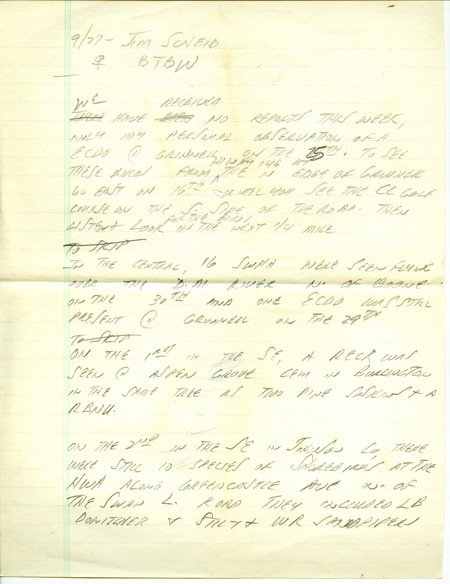 9/27- Jim Scheib
@ BTBW
We received
There have been no reports this week,
only my personal observation of a
ECDO @ Grinnell on the 25th. To see
these birds from the Hiway 146 at N. edge of Grinnell
go on 16th until you see the CC golf
course on the side of the road. Then
listen & look for the birds in the next 1/4 mile
To SRIP
In the central, 16 SWHA were seen flying
over the D.M. River N. of Boone
on the 30th and one ECDO was still
present @ Grinnell on the 29th
To SRIP
On the 1st in the SE, a RECR was
seen @ Aspen Grove Cem in Burlington
in the same tree as two Pine Siskins & a
RBNU.
On the 2nd in the SE in Johnson Co, there
were still 10 species of shorebirds at the
HWA along Greencastle Ave N. of
the Swan L. road they included LB
Dowitcher & Stilt & WR Sandpiper